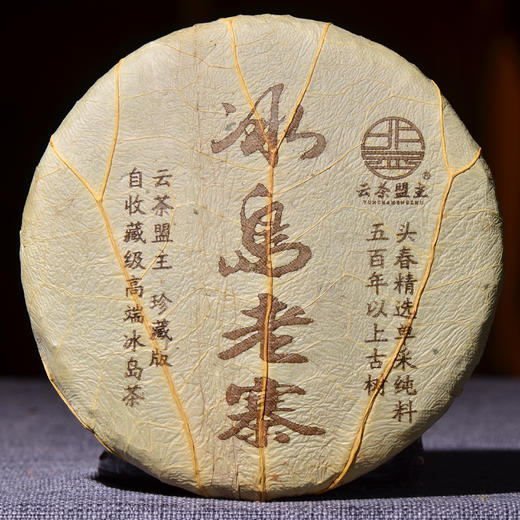 冰島老寨
云茶盟主
YUNCHAMENGZHU
头春精选单采纯料
五百年以上古树
云茶盟主 珍藏版
自收藏级高端冰岛茶